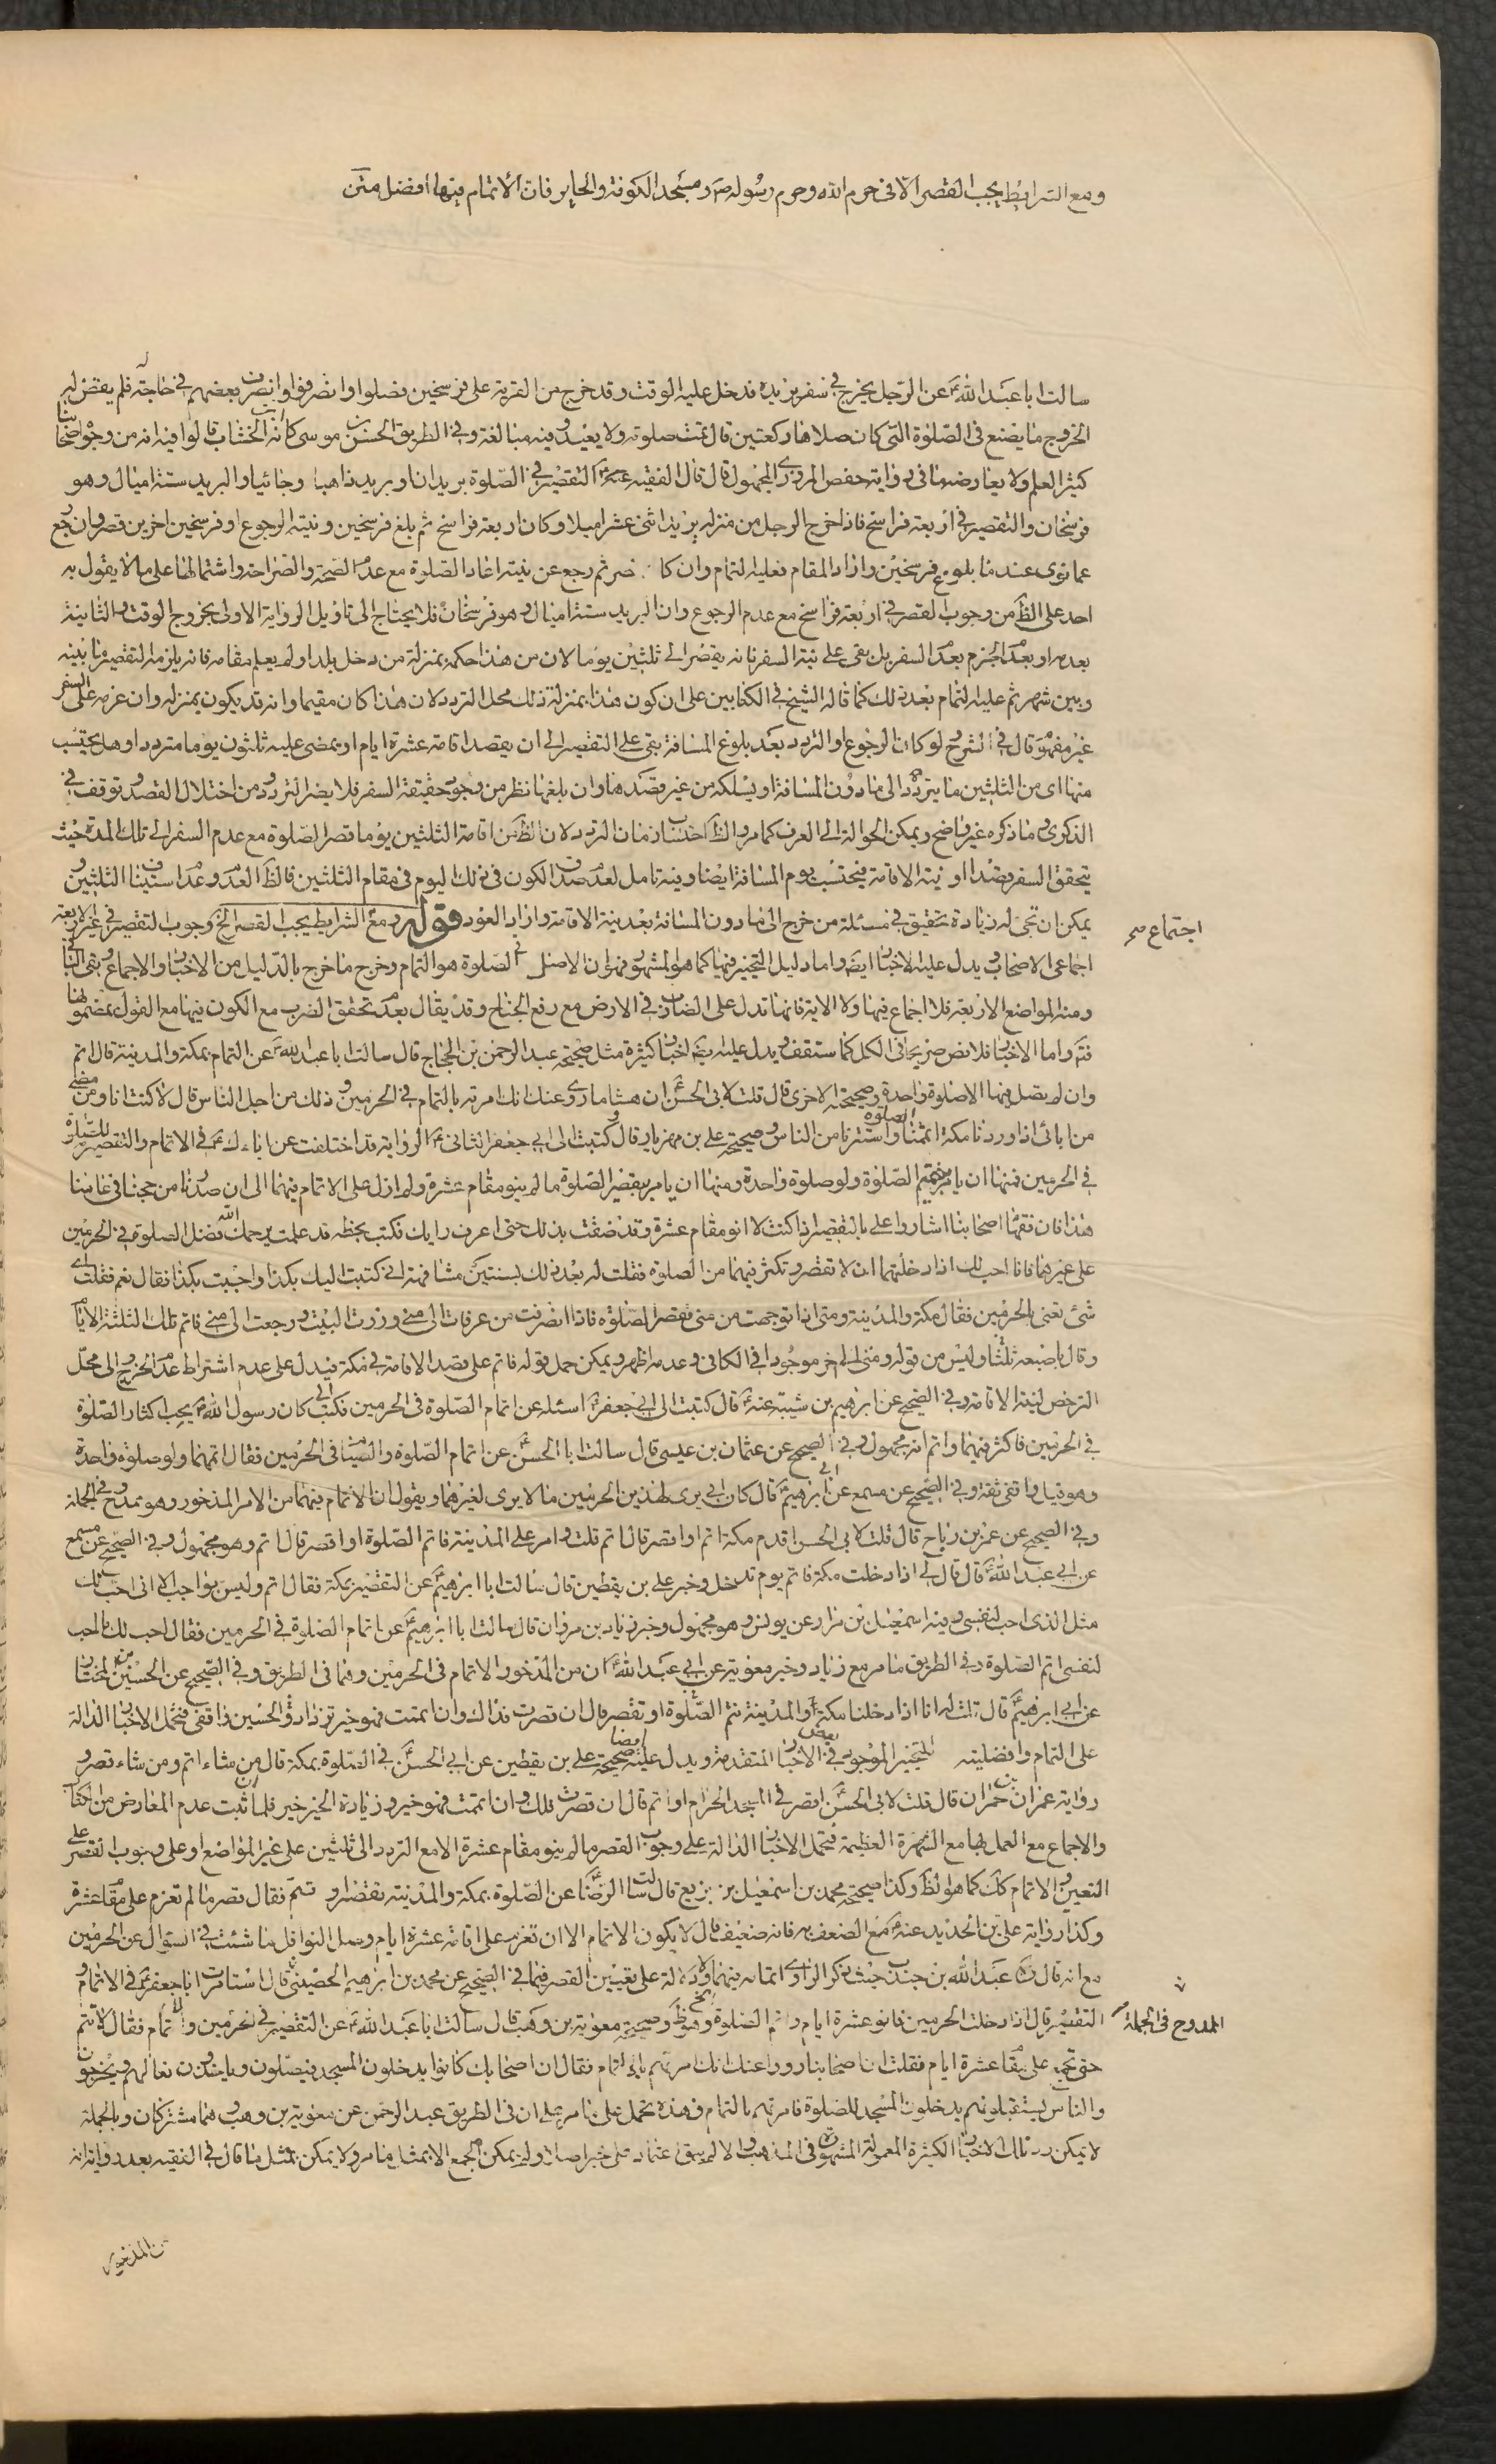 ومع الشرايط يجب القصر الا فى حرم الله وحرم رسوله ص ومسجد الكوفة والحاير فان الاتمام فيها افضل متن
سالت ابا عبد الله ع عن الرجل يخرج فى سفر يريده فدخل عليه الوقت وقد خرج من القرية على فرسخين فصلوا وانصرفوا وانصرف بعضهم فى حاجة فلم يقض له
الخروج ما يصنع فى الصلوة التى كان صلاها ركعتين قال تمت صلوته ولا يعيد وفيه مبالغة وفى الطريق الحسن بن موسى كانه الخشاب قالوا فيه انه من وجوه اصحابنا
كثير العلم ولا يعارضه ما فى رواية حفص المروزى المجهول قال قال الفقيه ع التقصير فى الصلوة بريدان او بريد ذاهبا وجائيا والبريد ستة اميال وهو
فرسخان والتقصير فى اربعة فراسخ فاذا خرج الرجل من منزله يريد اثنى عشر ميلا وكان اربعة فراسخ ثم بلغ فرسخين ونيته الرجوع او فرسخين اخرين قصر وان رجع
عما نوى عند ما بلغ فرسخين واراد المقام فعليه التمام وان كان قصر ثم رجع عن نيته اعاد الصلوة مع عدم الصحة والصراحة واشتمالها على ما لا يقول به
احد على الظ من وجوب القصر فى اربعة فراسخ مع عدم الرجوع وان البريد ستة اميال وهو فرسخان فلا يحتاج الى تاويل الرواية الاولى بخروج الوقت والثانية
بعدمه او بعد الجزم بعد السفر بل بقى على نية السفر فانه يقصر الى ثلثين يوما لان من هذا حكمه بمنزلة من دخل بلدا ولم يعلم مقامه فانه يلزمه التقصير ما بينه
وبين شهر ثم عليه التمام بعد ذلك كما قاله الشيخ فى الكتابين على ان كون هذا بمنزلة ذلك محل التردد لان هذا كان مقيما وانه قد يكون بمنزله وان عزمه على السفر
غير مفهوم قال فى الشرح لو كان الرجوع او التردد بعد بلوغ المسافة بقى على التقصير الى ان يقصد اقامة عشرة ايام او يمضى عليه ثلثون يوما مترددا وهل يحتسب
منها اى من الثلثين ما يتردد الى ما دون المسافة او يسلكه من غير قصد ها وان بلغها نظر من وجود حقيقة السفر فلا يضر التردد ومن اختلال القصد وتوقف فى
الذكرى وما ذكره غير واضح ويمكن الحوالة الى العرف كما مر والظ احتساب زمان التردد لان الظ من اقامة الثلثين يوما قصر الصلوة مع عدم السفر الى تلك المدة حيث
يتحقق السفر قصدا او نية الاقامة فيحتسب يوم المسافة ايضا وفيه تامل لعدم صدق الكون فى ذلك اليوم فى مقام الثلثين فالظ العدم وعدم استيناف الثلثين و
يمكن ان تجئ له زيادة تحقيق فى مسئلة من خرج الى ما دون المسافة بعد نية الاقامة واراد العود قوله ومع الشرايط يجب القصر الخ وجوب التقصير فى غير الاربعة
اجتماع صح
اجماعى الاصحاب ويدل عليه الاخبار ايضا واما دليل التخيير فيها كما هو المشهور فهو ان الاصل فى الصلوة هو التمام وخرج ما خرج بالدليل من الاخبار والاجماع وبقى الباقى
ومنه المواضع الاربعة فلا اجماع فيها ولا الاية فانها تدل على الضارب فى الارض مع رفع الجناح وقد يقال بعدم تحقق الضرب مع الكون فيها مع القول بمضمونها
فتم واما الاخبار فلا نص صريحا فى الكل كما ستقف ويدل عليه ايضا اخبار كثيرة مثل صحيحة عبد الرحمن بن الحجاج قال سالت ابا عبد الله ع عن التمام بمكة والمدينة قال اتم
وان لم تصل فيهما الا صلوة واحدة وصحيحته الاخرى قال قلت لابى الحسن ع ان هشاما روى عنك انك امرته بالتمام فى الحرمين وذلك من اجل الناس قال لا كنت انا ومن مضى
من ابائى اذا وردنا مكة اتممنا الصلوة واستترنا من الناس وصحيحة على بن مهزيار قال كتبت الى ابى جعفر الثانى ع الرواية قد اختلفت عن ابائك ع فى الاتمام والتقصير للصلوة
فى الحرمين فمنها ان يامر بتتميم الصلوة ولو صلوة واحدة ومنها ان يامر بتقصير الصلوة ما لم ينو مقام عشرة ولم ازل على الاتمام فيهما الى ان صدرنا من حجنا فى عامنا
هذا فان فقهاء اصحابنا اشاروا على بالتقصير اذا كنت لا انو مقام عشرة وقد ضقت بذلك حتى اعرف رايك فكتب بخطه قد علمت يرحمك الله فضل الصلوة فى الحرمين
على غيرهما فانا احب لك اذا دخلتهما ان لا تقصر وتكثر فيهما من الصلوة فقلت له بعد ذلك بسنتين مشافهة انى كتبت اليك بكذا واجبت بكذا فقال نعم فقلت اى
شئ تعنى بالحرمين فقال مكة والمدينة ومتى اذا توجهت من منى فقصر الصلوة فاذا انصرفت من عرفات الى منى وزرت البيت ورجعت الى منى فاتم تلك الثلثة الايام
وقال باصبعه ثلثا وليس من قوله ومتى الى اخر موجودا فى الكافى وعدمه اظهر ويمكن حمل قوله فاتم على قصد الاقامة فى مكة فيدل على عدم اشتراط عدم الخروج الى محل
الترخص لنية الاقامة وفى الصحيح عن ابرهيم بن شيبة عنه ع قال كتبت الى ابى جعفر ع اسئله عن اتمام الصلوة فى الحرمين فكتب الى كان رسول الله ص يحب اكثار الصلوة
فى الحرمين فاكثر فيهما واتم انه مجهول وفى الصحيح عن عثمان بن عيسى قال سالت ابا الحسن ع عن اتمام الصلوة والصيام فى الحرمين فقال اتمهما ولو صلوة واحدة
وهو قيل واقفى ثقة وفى الصحيح عن مسمع عن ابى ابرهيم ع قال كان ابى يرى لهذين الحرمين ما لا يرى لغيرهما ويقول ان الاتمام فيهما من الامر المذخور وهو ممدوح فى الجملة
وفى الصحيح عن عمر بن رباح قال قلت لابى الحسن اقدم مكة اتم او اقصر قال اتم قلت وامر على المدينة فاتم الصلوة او اقصر قال اتم وهو مجهول وفى الصحيح عن مسمع
عن ابى عبد الله ع قال قال لى اذا دخلت مكة فاتم يوم تدخل وخبر على بن يقطين قال سالت ابا ابرهيم ع عن التقصير بمكة فقال اتم وليس بواجب الا انى احب لك
مثل الذى احب لنفسى وفيه اسمعيل بن مرار عن يونس وهو مجهول وخبر زياد بن مروان قال سالت ابا ابرهيم ع عن اتمام الصلوة فى الحرمين فقال احب لك ما احب
لنفسى اتم الصلوة وفى الطريق ما مر مع زياد وخبر معوية عن ابى عبد الله ع ان من المذخور الاتمام فى الحرمين وفى الطريق وفى الصحيح عن الحسين بن المختار
عن ابى ابرهيم ع قال قلت له انا اذا دخلنا مكة والمدينة نتم الصلوة او نقصر قال ان قصرت فذاك وان اتممت فهو خير تزداد والحسين واقفى فتحمل الاخبار الدالة
على التمام وافضليته للتخيير الموجود فى بعض الاخبار المتقدمة ويدل عليه ايضا صحيحة على بن يقطين عن ابى الحسن ع فى الصلوة بمكة قال من شاء اتم ومن شاء قصر و
رواية عمران بن حمران قال قلت لابى الحسن ع اقصر فى المسجد الحرام او اتم قال ان قصرت فلك وان اتممت فهو خير وزيادة الخير خير فلما ثبت عدم المعارض من الكتاب
والاجماع مع العمل بها مع الشهرة العظيمة فتحمل الاخبار الدالة على وجوب القصر ما لم ينو مقام عشرة الا مع التردد الى ثلثين على غير المواضع او على وجوب القصر على
التعيين والاتمام كذلك كما هو الظ وكذا صحيحة محمد بن اسمعيل بن بزيع قال سالت الرضا ع عن الصلوة بمكة والمدينة تقصير او تتم فقال قصر ما لم تعزم على مقام عشرة
وكذا رواية على بن الحديد عنه ع مع الضعف به فانه ضعيف قال لا يكون الاتمام الا ان تعزم على اقامة عشرة ايام وصل النوافل ما شئت فى السوال عن الحرمين
مع انه قال عبد الله بن جندب حيث ذكر الراوى اتمامه فيهما ولا دلالة على تعيين القصر فيما فى الصحيح عن محمد بن ابرهيم الحضينى قال استامرت ابا جعفر ع فى الاتمام و
التقصير قال اذا دخلت الحرمين فانو عشرة ايام واتم الصلوة وهو ظ وصحيحة معوية بن وهب قال سالت ابا عبد الله ع عن التقصير فى الحرمين والتمام فقال لا تتم
الممدوح فى الجملة
حتى تجمع على مقام عشرة ايام فقلت ان اصحابنا رووا عنك انك امرتهم بالتمام فقال ان اصحابك كانوا يدخلون المسجد فيصلون وياخذون نعالهم ويخرجون
والناس يستقبلونهم يدخلون المسجد للصلوة فامرتهم بالتمام وهذه تحمل على ما مر على ان فى الطريق عبد الرحمن عن معوية بن وهب وهما مشتركان وبالجملة
لا يمكن رد تلك الاخبار الكثيرة المعمولة المشهورة فى المذهب والا لم يبق اعتماد على خبر اصلا ولم يمكن الجمع الا بمثل ما مر ولا يمكن بمثل ما قال فى الفقيه بعد رواية انه
من المذخور